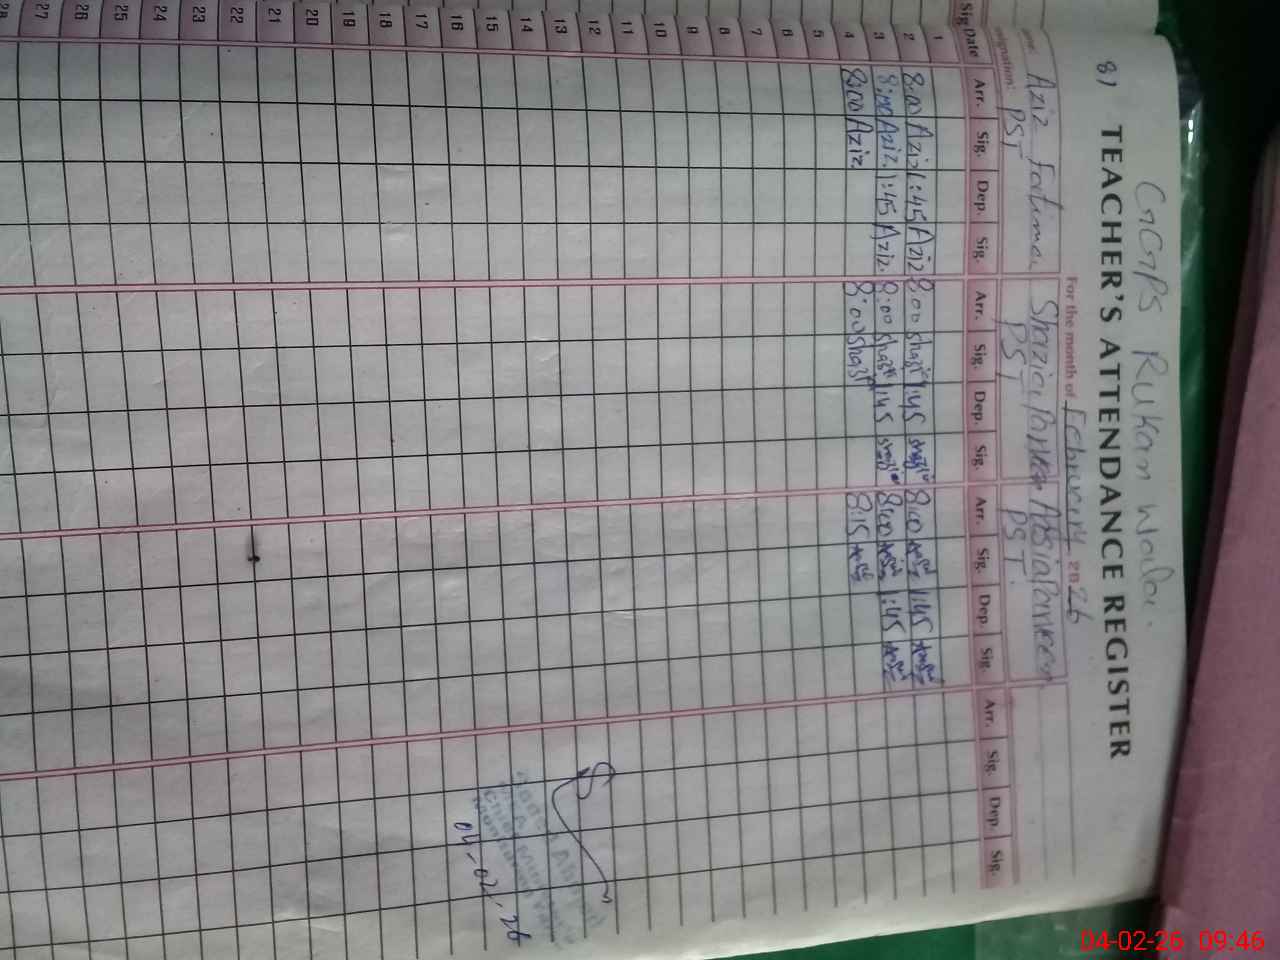 GGPS Rukan Wala.
81 TEACHER'S ATTENDANCE REGISTER
For the month of February 2026
Aziz Fatima Shazia Parveen Absia Parveen
PST PST PST.
Sig Date Arr. Sig. Dep. Sig. Arr. Sig. Dep. Sig. Arr. Sig. Dep. Sig. Arr. Sig. Dep. Sig.
1
2 8:00 Aziz 1:45 Aziz 8:00 Shazia 1:45 Shazia 8:00 1:45
3 8:00 Aziz 1:45 Aziz 8:00 Shazia 1:45 Shazia 8:00 1:45
4 8:00 Aziz 8:00 Shazia 8:15
5
6
7
8
9
10
11
12
13
14
15
16
17
18
19
20
21
22
23
24
25
26
27
28
04-02-26
04-02-26 09:46